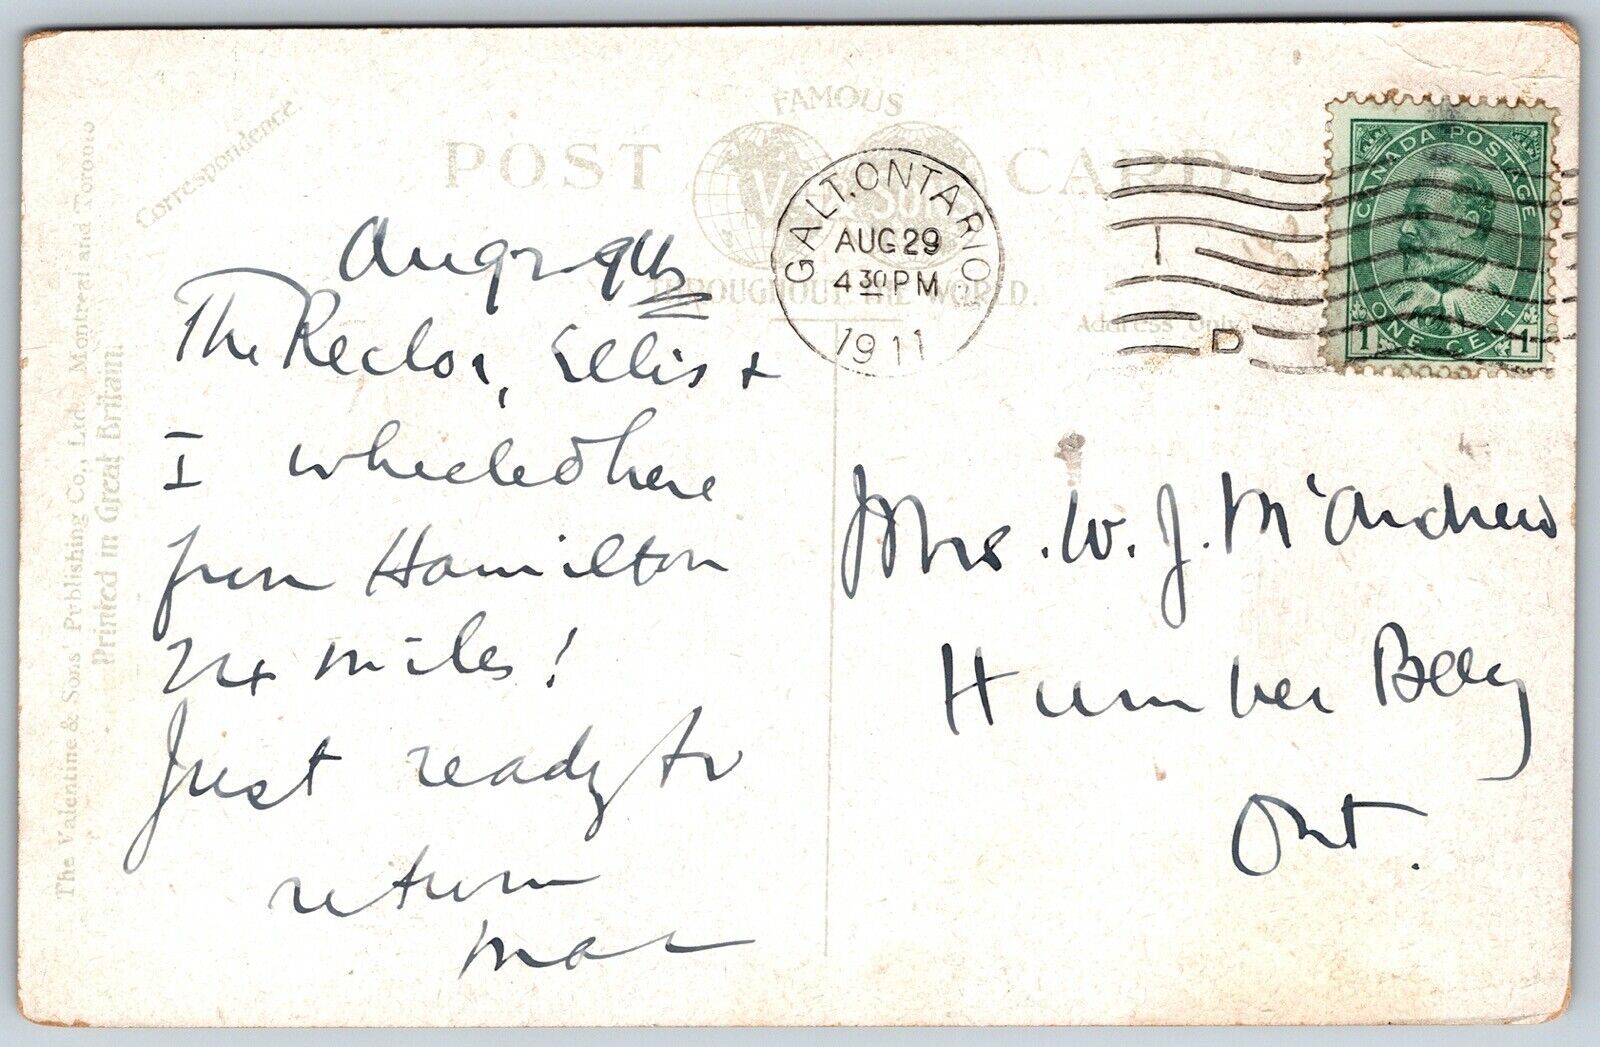 The Valentine & Sons' Publishing Co., Ltd. Montreal and Toronto
Printed in Great Britain.
Correspondence.
FAMOUS
POST CARD
THROUGHOUT THE WORLD.
Address Only
GALT. ONTARIO
AUG 29
4 30 PM
1911
D
CANADA POSTAGE
1 ONE CENT 1
The Rector, Ellis +
I wheeled here
from Hamilton
24 miles!
Just ready to
return
Mac
Mrs. W. J. McAndrew
Humber Bay
Ont.